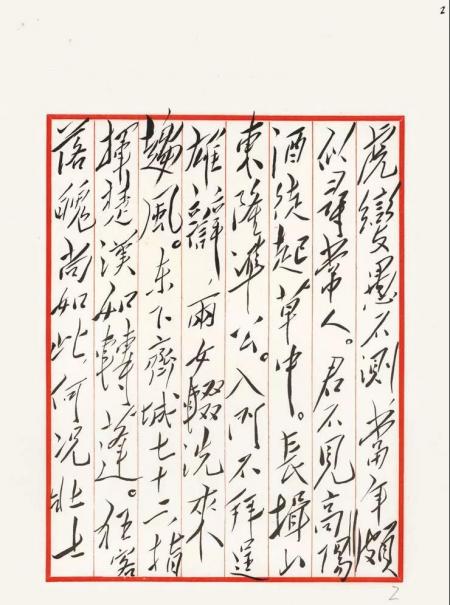 2
虎變愚不測,當年頗
似尋常人。君不見高陽
酒徒起草中。長揖山
東隆準公。入门不拜逞
雄辯,兩女輟洗來
趨風。东下齊城七十二指
揮楚漢如轉蓬。狂客
落魄尚如此,何況壯士
2